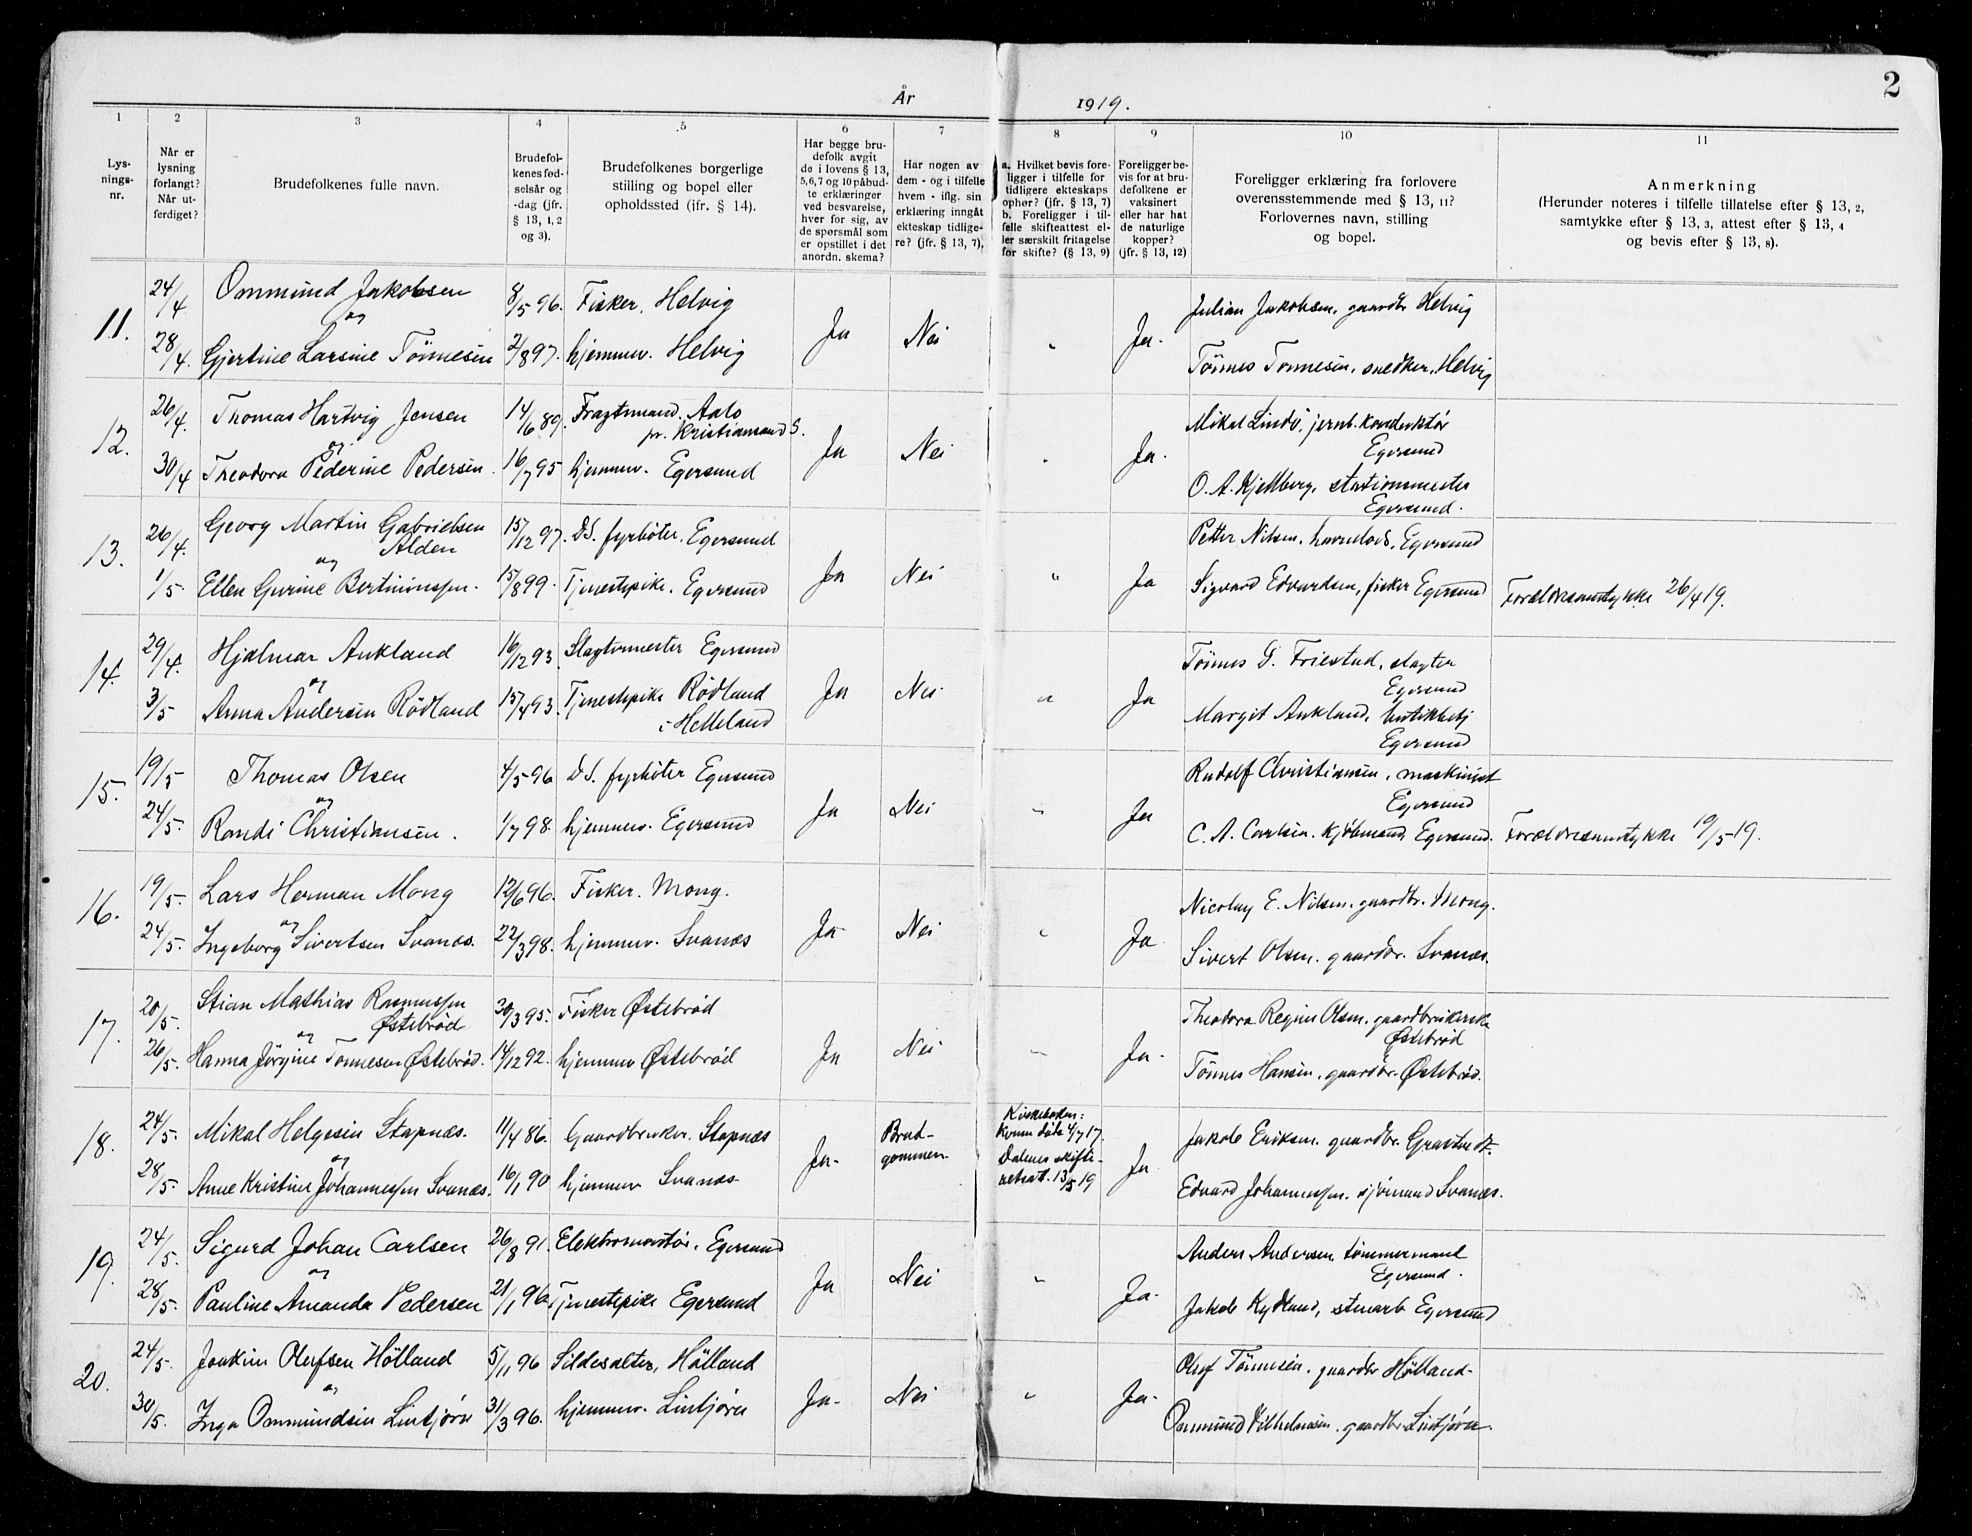 2
År 1919.
1 2 3 4 5 6 7 8 9 10 11
Lysnings-nr.
Når er lysning forlangt? Når utferdiget?
Brudefolkenes fulle navn.
Brudefolkenes fødselsår og -dag (jfr. § 13, 1, 2 og 3).
Brudefolkenes borgerlige stilling og bopel eller opholdssted (jfr. § 14).
Har begge brudefolk avgit de i lovens § 13, 5,6,7 og 10 påbudte erklæringer ved besvarelse, hver for sig, av de spørsmål som er opstillet i det anordn. skema?
Har nogen av dem - og i tilfelle hvem - iflg. sin erklæring inngåt ekteskap tidligere? (jfr. § 13, 7).
a. Hvilket bevis foreligger i tilfelle for tidligere ekteskaps ophør? (jfr. § 13, 7)
b. Foreligger i tilfelle skifteattest eller særskilt fritagelse for skifte? (§ 13, 9)
Foreligger bevis for at brudefolkene er vaksinert eller har hat de naturlige kopper? (jfr. § 13, 12)
Foreligger erklæring fra forlovere overensstemmende med § 13, 11? Forlovernes navn, stilling og bopel.
Anmerkning
(Herunder noteres i tilfelle tillatelse efter § 13, 2, samtykke efter § 13, 3, attest efter § 13, 4 og bevis efter § 13, 8).
11. 24/4 Ommund Jakobsen 8/5 96. Fisker. Helvig Julian Jakobsen, gaardbr Helvig
og Ja Nei " Ja.
28/4. Gjertine Larsine Tönnesen 2/8 97. hjemmev. Helvig Tönnes Tönnesen, snedker, Helvig
12. 26/4. Thomas Hartvig Jensen 14/6 89. Fragtmand. Aalo pr. Kristiansand S. Mikal Lindö, jernb. konduktör Egersund
og Ja Nei " Ja.
30/4 Theodora Pederine Pedersen. 16/7 95 hjemmev. Egersund O. A. Kjellberg, stationsmester Egersund.
13. 26/4. Georg Martin Gabrielsen Alden 15/12 97. D.S. fyrböter. Egersund Petter Nilsen, havnelods, Egersund
og Ja Nei " Ja
1/5 Ellen Gurine Bertinionssen. 15/8 99. Tjenestepike. Egersund Sigvard Edvardsen, fisker Egersund Forældresamtykke 26/4 19.
14. 29/4. Hjalmar Aukland 16/12 93 Slagtermester Egersund Tönnes G. Friestad, slagter Egersund
og Ja Nei " Ja
3/5 Anna Andersen Rödland 15/4 93. Tjenestepike Rödland i Helleland Margit Aukland, butikbetj Egersund
15. 19/5 Thomas Olsen 4/5 96 D.S. fyrböter Egersund Rudolf Christiansen, maskinist Egersund
og Ja Nei " Ja
24/5. Randi Christiansen. 1/7 98. hjemmev. Egersund C. A. Carlsen. kjöbmand Egersund. Forældresamtykke 19/5-19.
16. 19/5. Lars Herman Mong 12/6 96. Fisker. Mong. Nicolay E. Nilsen. gaardbr. Mong.
og Ja- Nei " Ja
24/5. Ingeborg Sivertsen Svanæs. 22/3 98. hjemmev. Svanæs Sivert Olsen. gaardbr. Svanæs.
17. 20/5. Stian Mathias Rasmussen Østebröd 30/3 95. Fisker Østebröd Theodora Regine Olsen, gaardbrukerske Østebröd
og Ja Nei " Ja.
26/5. Hanna Jörgine Tönnesen Østebröd. 14/12 92. hjemmev Østebröd Tönnes Hansen, gaardbr. Østebröd.
18. 24/5. Mikal Helgesen Stapnæs. 11/4 86. Gaardbruker. Stapnæs Jakob Eriksen. gaardbr.
og Ja- Brudgommen. Kirkeboken: Konen döde 4/7 17. Dalenes skifteretsatt. 13/5 19 Ja
28/5. Anne Kristine Johannessen Svanæs. 16/1 90 hjemmev Svanæs Edvard Johannessen. sjömand Svanæs.
19. 24/5. Sigurd Johan Carlsen 26/8 91. Elektromontör. Egersund Anders Andersen tömmermand Egersund.
og Ja Nei " Ja.
28/5. Pauline Amanda Pedersen 21/1 96. Tjenestepike Egersund Jakob Kydland, stuarb Egersund
20. 24/5. Joakim Olafsen Hölland 5/11 96 Sildesalter, Hölland Olaf Tönnesen. gaardbr Hölland-
og Ja- Nei " Ja-
30/5. Inga Ommundsen Lintjörn 31/3 96. hjemmev. Lintjörn Ommund Vilhelmsen. gaardbr Lintjörn.